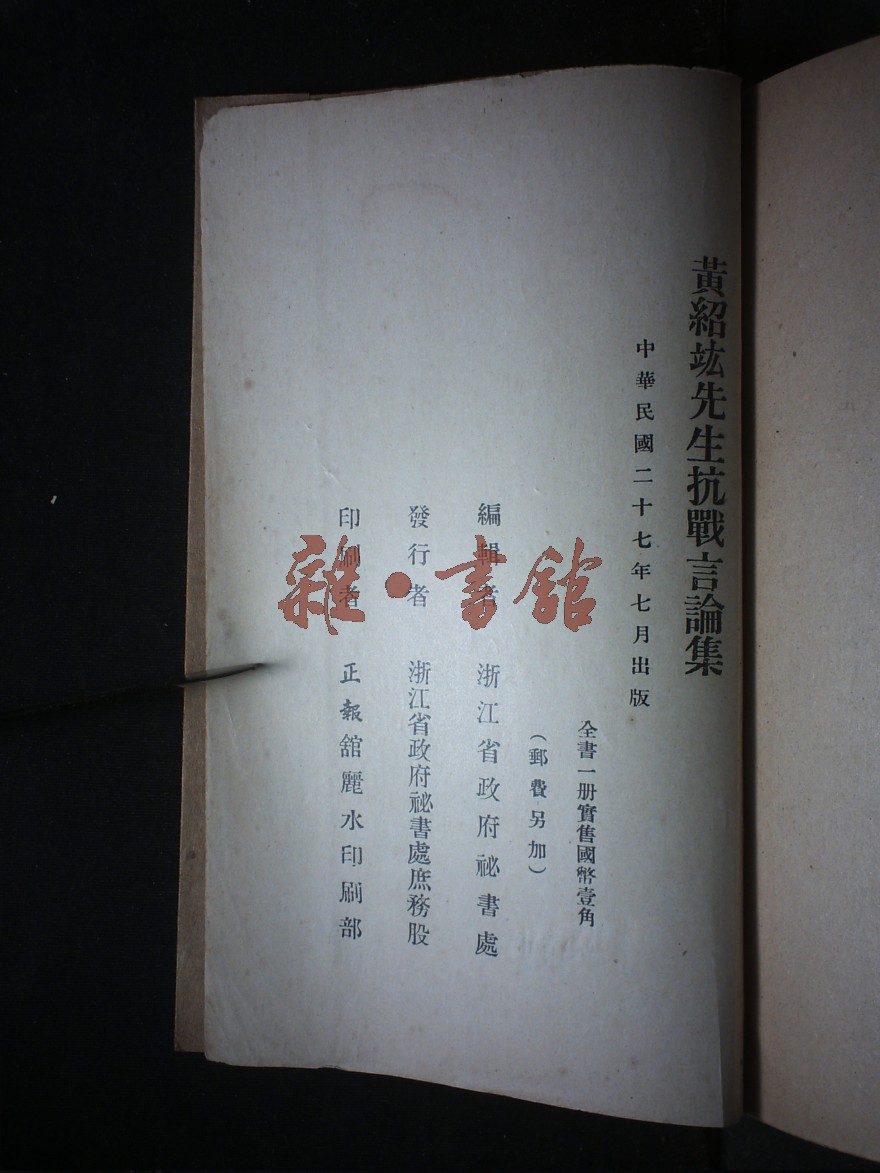 黃紹竑先生抗戰言論集
中華民國二十七年七月出版
全書一册實售國幣壹角
（郵費另加）
編輯者 浙江省政府祕書處
發行者 浙江省政府祕書處庶務股
印刷者 正報舘麗水印刷部
雜·書館